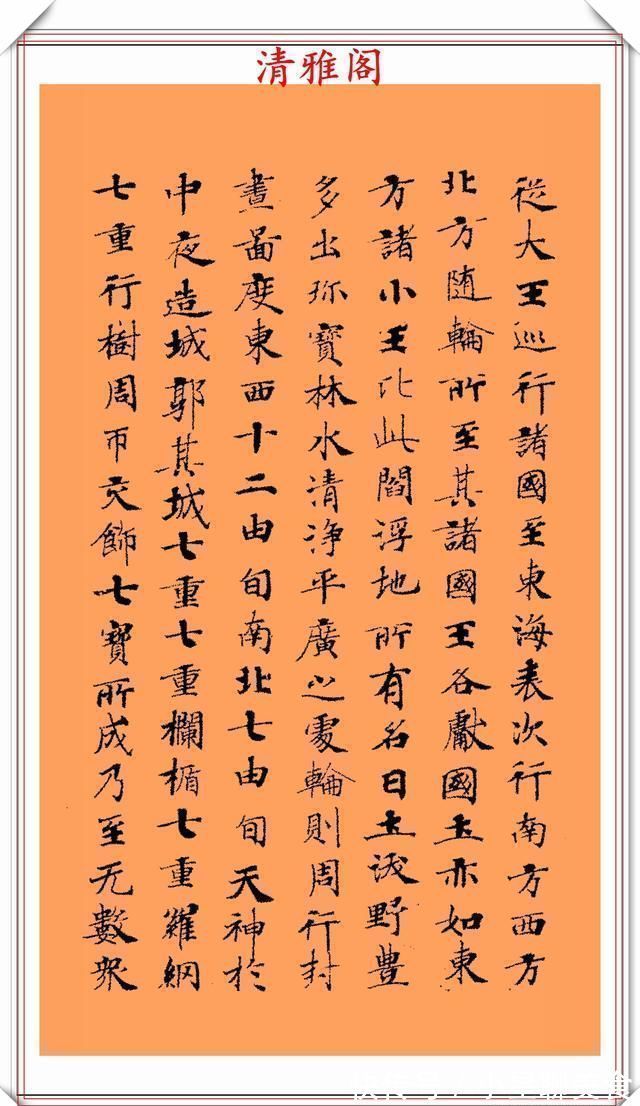 清雅阁
從大王巡行諸國至東海表次行南方西方
北方随輪所至其諸國王各獻國土亦如東
方諸小王比此閻浮地所有名曰土沃野豊
多出珎寶林水清淨平廣之處輪則周行封
畫啚度東西十二由旬南北七由旬天神於
中夜造城郭其城七重七重欄楯七重羅網
七重行樹周帀交飾七寶所成乃至无數衆